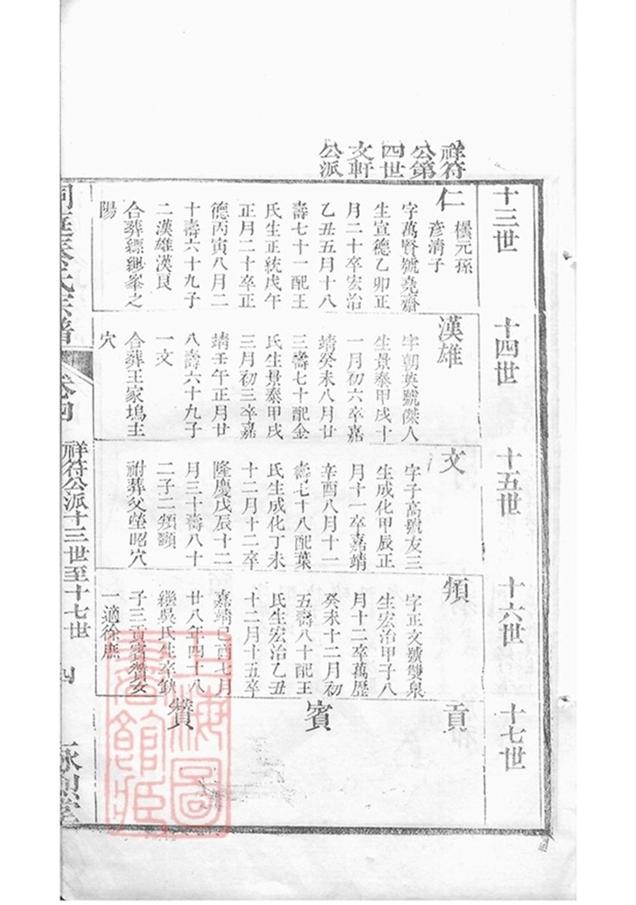 祥符
公第
四世
文軒
公派
十三世
仁
櫄元孫
彥清子
字萬賢號堯齋
生宣德乙卯正
月二十卒宏治
乙丑五月十八
壽七十一配王
氏生正統戊午
正月二十卒正
德丙寅八月二
十壽六十九子
二漢雄漢良
合葬經綣峯之
陽
十四世
漢雄
字朝英號傑人
生景泰甲戌十
一月初六卒嘉
靖癸未八月廿
三壽七十配金
氏生景泰甲戌
三月初三卒嘉
靖壬午正月廿
八壽六十九子
一文
合葬王家塢主
穴
十五世
文
字子高號友三
生成化甲辰正
月十一卒嘉靖
辛酉八月十一
壽七十八配葉
氏生成化丁未
十二月十二卒
隆慶戊辰十二
月三十壽八十
二子二頻顥
祔葬父塋昭穴
十六世
頻
字正文號雙泉
生宏治甲子八
月十二卒萬歷
癸未十二月初
五壽八十配王
氏生宏治乙丑
十二月十五卒
嘉靖酉七月
廿八年四十八
繼吳氏生卒缺
子三貢賓贊女
一適徐應
十七世
貢
賓
贊
洞庭秦氏宗譜
卷四
祥符公派十三世至十七世
四
詠烈堂
上海圖
書館藏